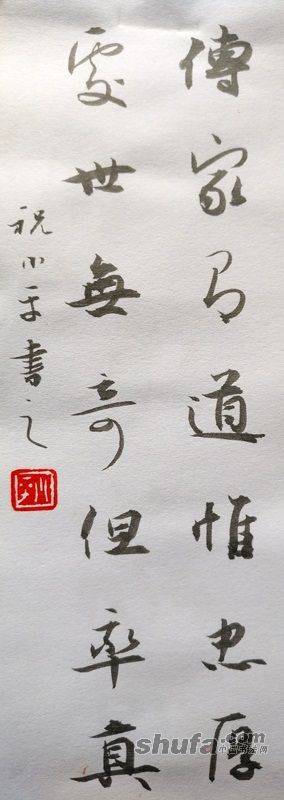 傳家有道惟忠厚
處世無奇但率真
祝小平書之
shufa.com